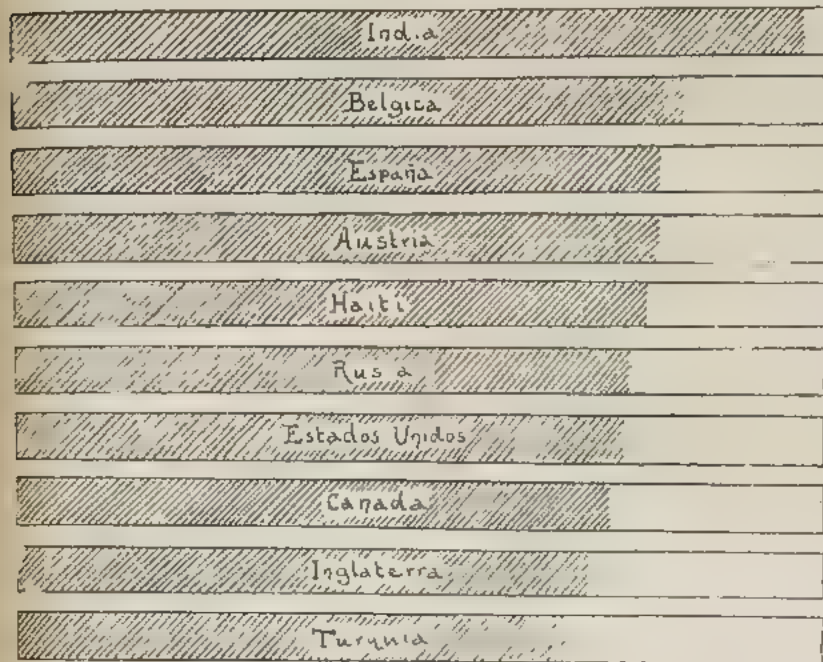 India
Belgica
España
Austria
Haiti
Rusia
Estados Unidos
Canada
Inglaterra
Turquia